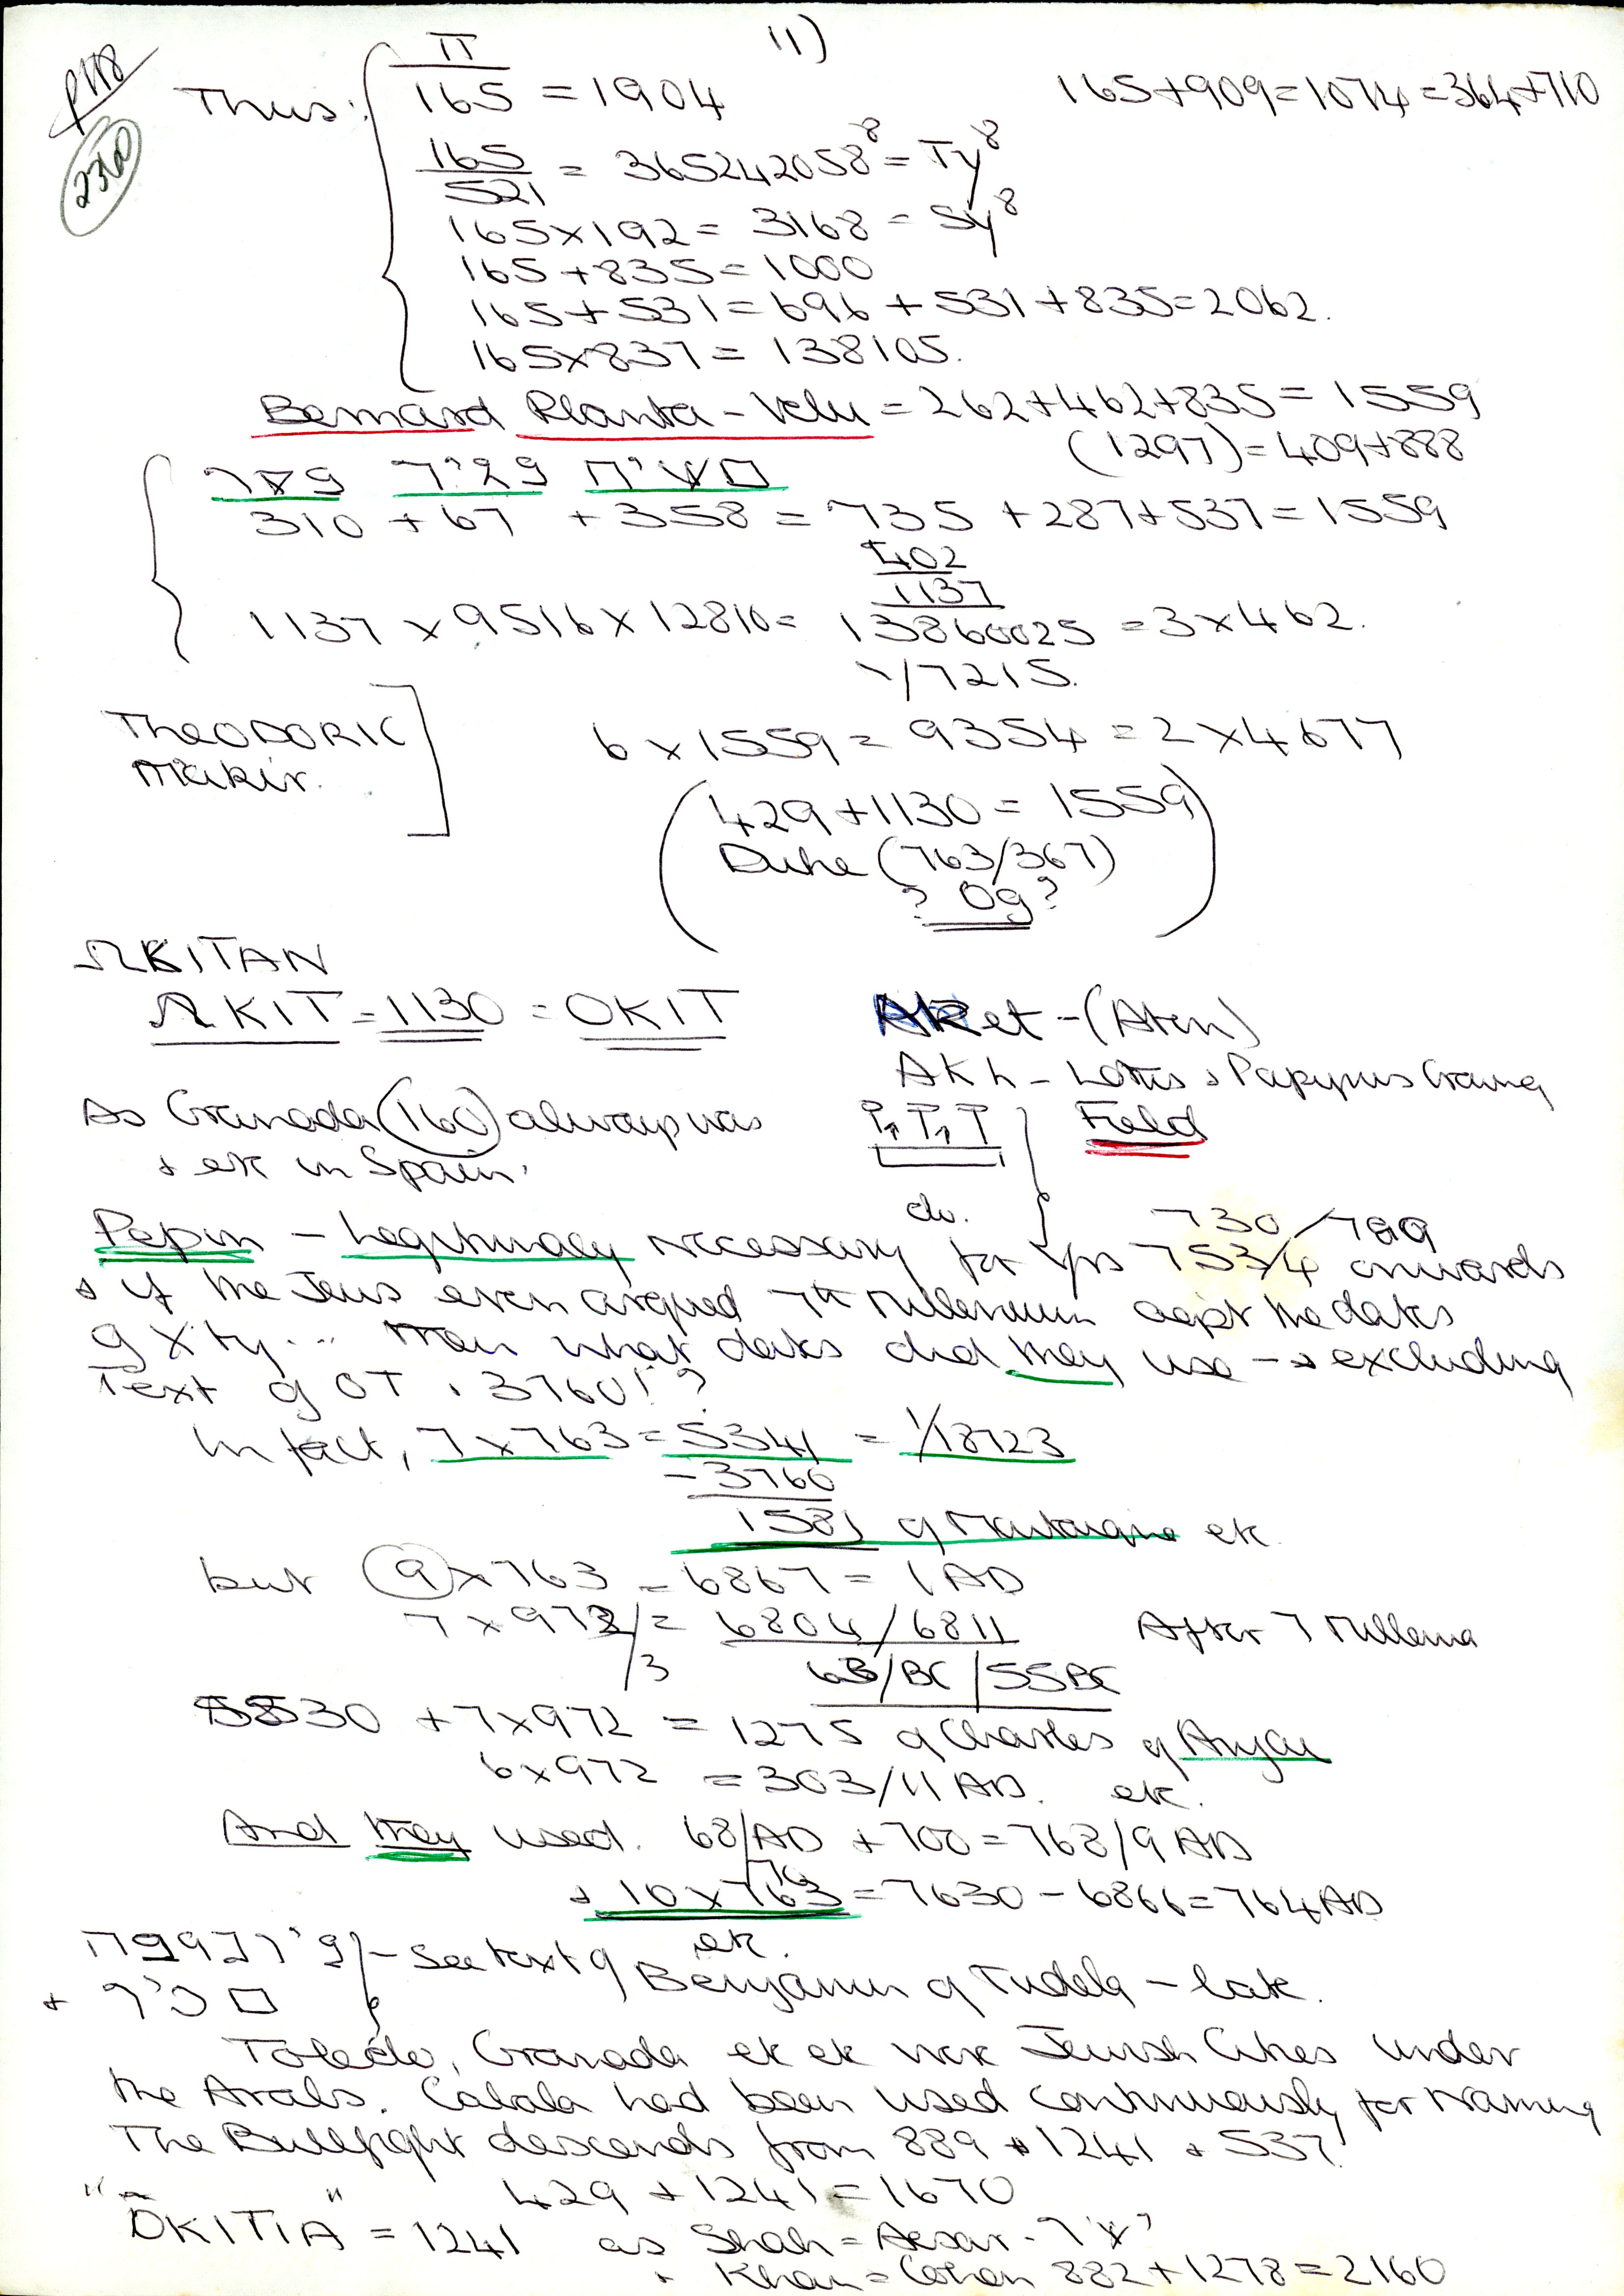 11)
2360
Thus: π/165 = 1904
165+909=1074=364+710
165/521 = 365242058⁸ = Ty⁸
165×192= 3168 = Sy⁸
165+835=1000
165+531=696+531+835=2062.
165×837= 138105.
Bernard Planta-Velu = 262+462+835= 1559
(1297)=409+888
310 + 67 + 358 = 735 +287+537=1559
+402
1137
1137 × 9516 × 12810= 13860025 = 3×462.
1/7215.
THEODORIC
Makir.
6×1559= 9354 = 2×4677
(429+1130= 1559)
Duke (763/367)
? Og?
ΩKITAN
ΩKIT=1130=OKIT
AKet -(Aten)
AKh - Lotus & Papyrus Craung
As Granada (160) always was
& etc in Spain.
Field
do.
730/799
Pepin - Legitimacy necessary for Yrs 753/4 onwards
& if the Jews even argued 7th Millenium agst the dates
of Xty... then what dates did they use -& excluding
Text of OT . 3760! ?
In fact, 7×763=5341 = 1/18723
-3760
1581 of Montaigne etc
but (9)×763 = 6867 = 1AD
7×972/3 = 6804/6811 After 7 Millenia
63/BC/55BC
5530 +7×972 = 1275 of Charles of Anjou
6×972 = 303/11AD. etc.
And they used. 68/AD +700=768/9AD
/70
& 10×763=7630-6866=764AD
etc.
- See text of Benjamin of Tudela - late.
Toledo, Granada etc etc were Jewish Cities under
the Arabs. Cabala had been used continuously for Naming
The Bullfight descends from 889 + 1241 + 537
429 + 1241=1670
"ÔKITIA" = 1241 as Shah = Aesar -
& Khan=Cohen 882+1278=2160